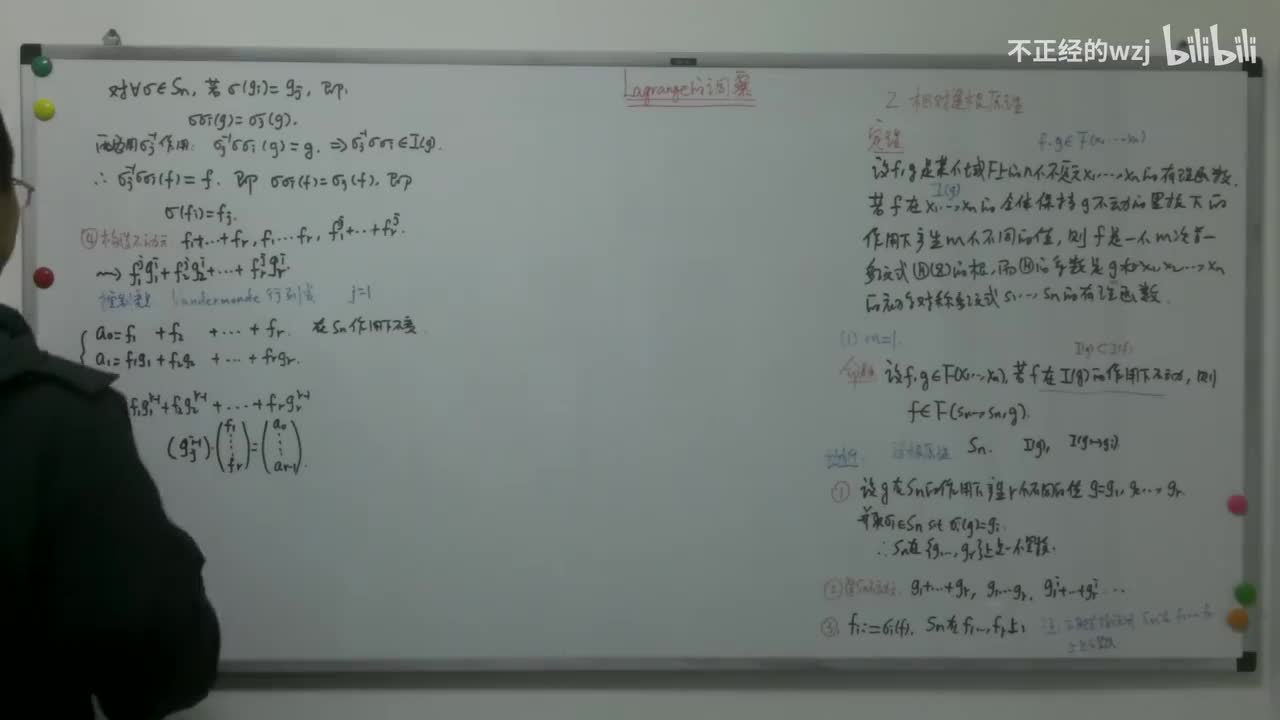 不正经的wzj bilibili
Lagrange的洞察
对∀σ∈Sn, 若 σ(gi)=gj, 即
σσi(g)=σj(g).
两边用σj⁻¹作用: σj⁻¹σσi(g)=g, ⇒σj⁻¹σσi∈I(g).
∴ σj⁻¹σσi(f)=f. 即 σσi(f)=σj(f). 即
σ(fi)=fj.
④ 构造不动元 f1+…+fr, f1…fr, f1^j+…+fr^j.
⇝ f1^j g1^i+f2^j g2^i+…+fr^j gr^i.
Vandermonde 行列式 j=1
a0=f1 +f2 +…+fr. 在Sn作用下不变.
a1=f1g1+f2g2 +…+frgr.
f1g1^r-1+f2g2^r-1+…+frgr^r-1
(gj^i-1)·(f1 ⋮ fr)=(a0 ⋮ ar-1).
2. 相对
定理 f,g∈F(x1…xn)
设f,g是某个域F上的n个不定元x1,…,xn的有理函数.
I(g)
若f在x1…xn的全体保持g不动的置换下的
作用下产生m个不同的值, 则f是一个m次首一
多项式Ⓗ(Z)的根, 而Ⓗ的系数是g和x1,x2,…,xn
的初等对称多项式s1,…,sn的有理函数.
(1) m=1.
I(g)⊂I(f)
命题 设f,g∈F(x1…xn), 若f在I(g)的作用下不动, 则
f∈F(s1…sn,g).
Sn. I(g),
① 设g在Sn的作用下产生r个不同的值g=g1,g2…,gr.
并取σi∈Sn s.t. σi(g)=gi.
∴Sn在{g1…,gr}上是一个置换.
② g1+…+gr, g1…gr, g1^i+…+gr^i…
③ fi:=σi(f). Sn在f1…,fr上: